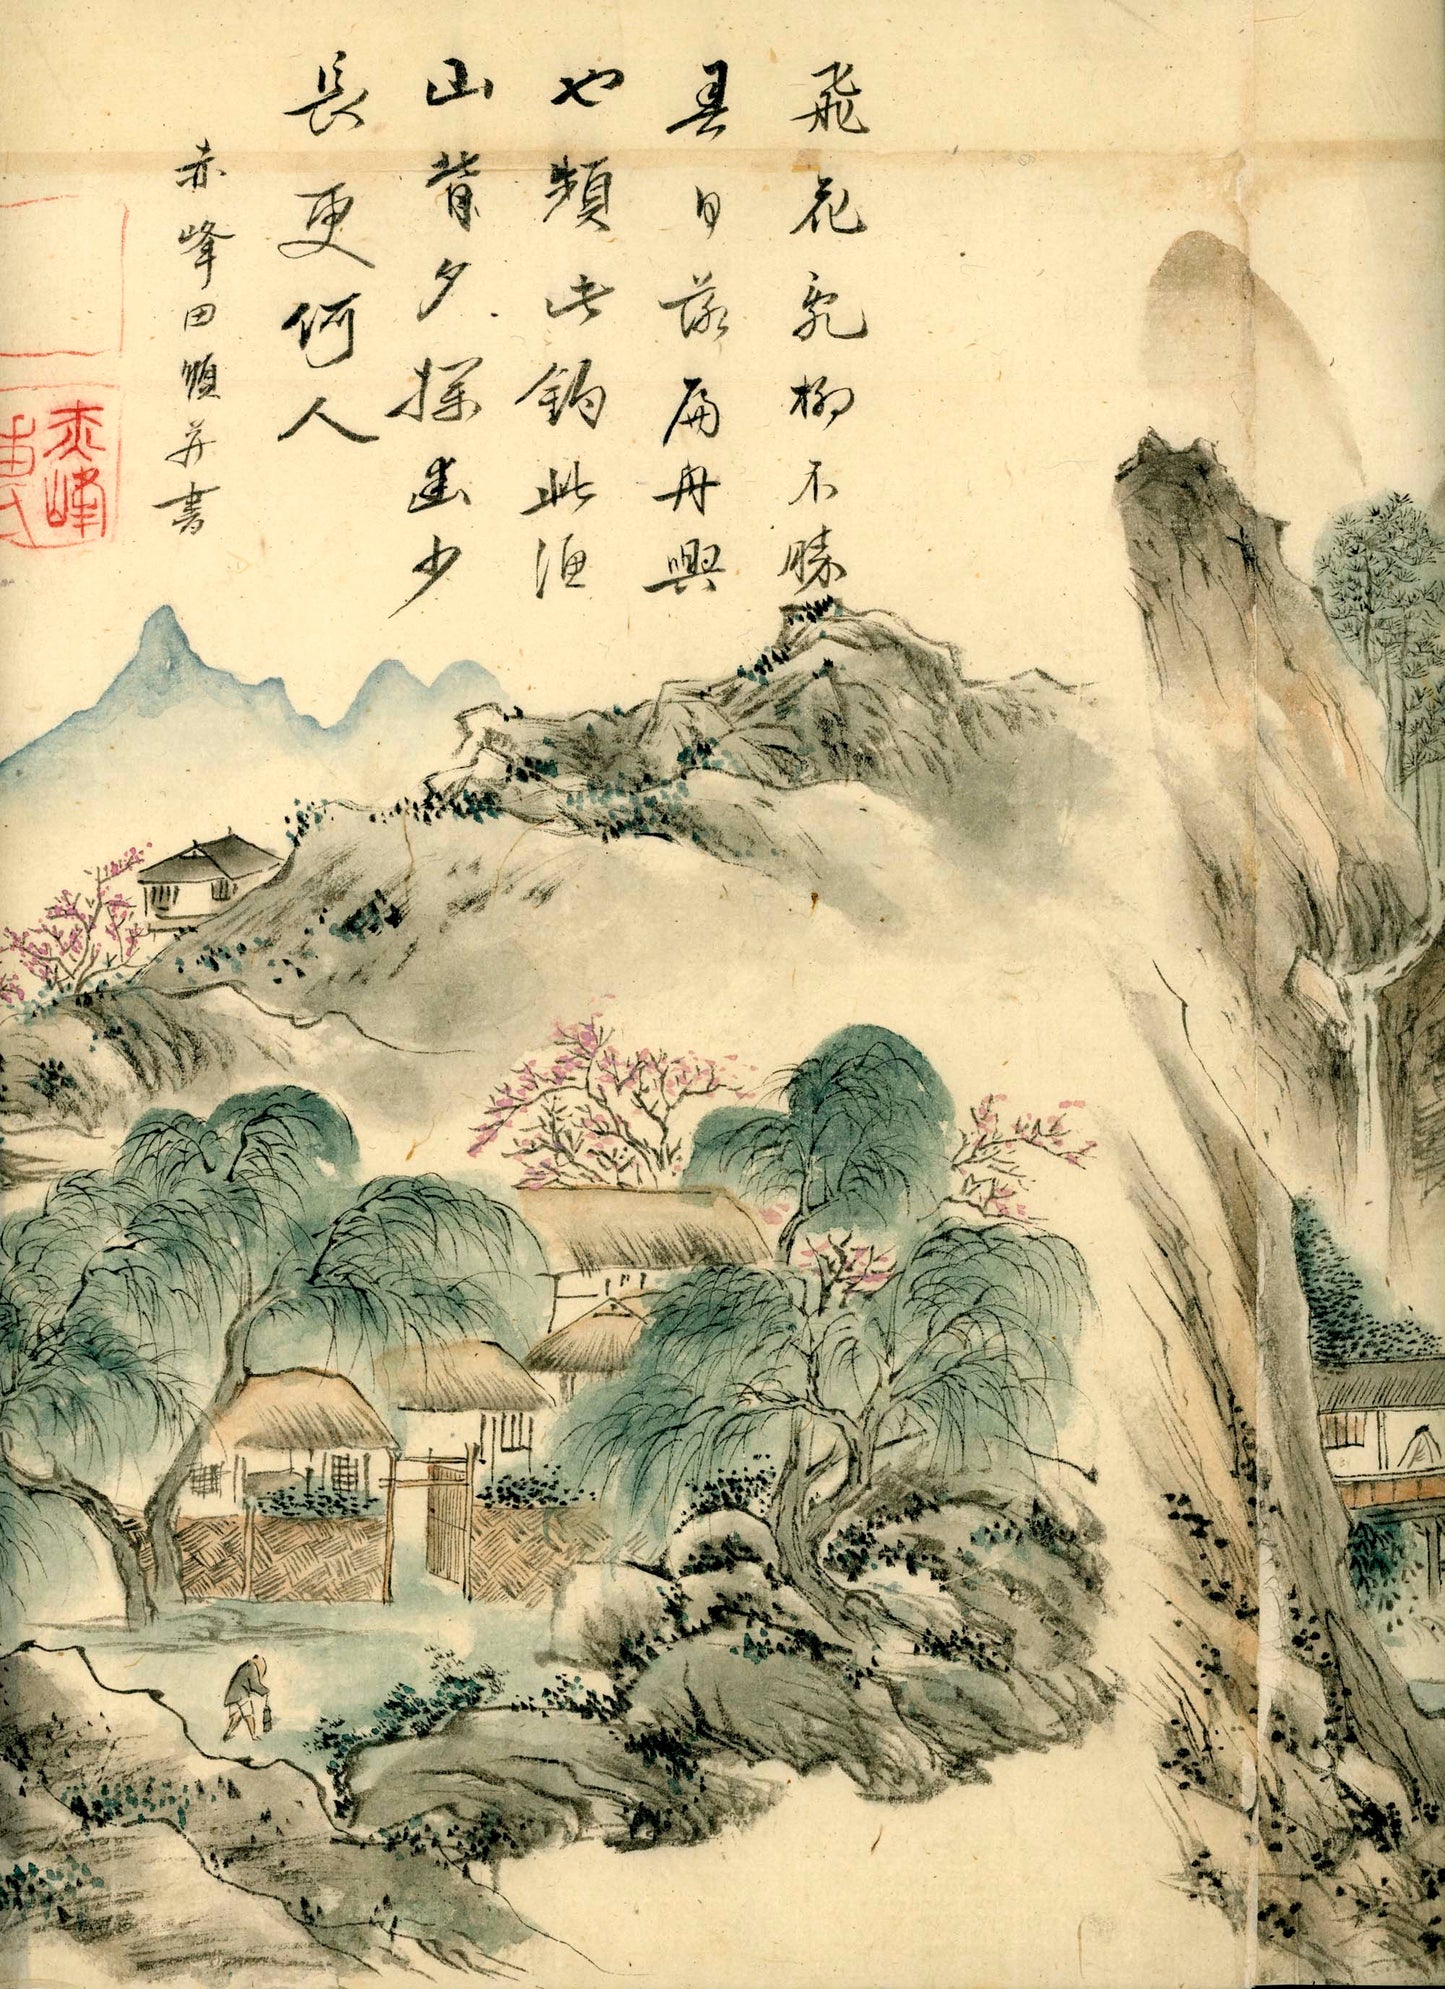 飛花乱柳不勝
春日落扁舟興
也頻此釣此漁
山背夕探幽少
長更何人
赤峰田并書
赤峰